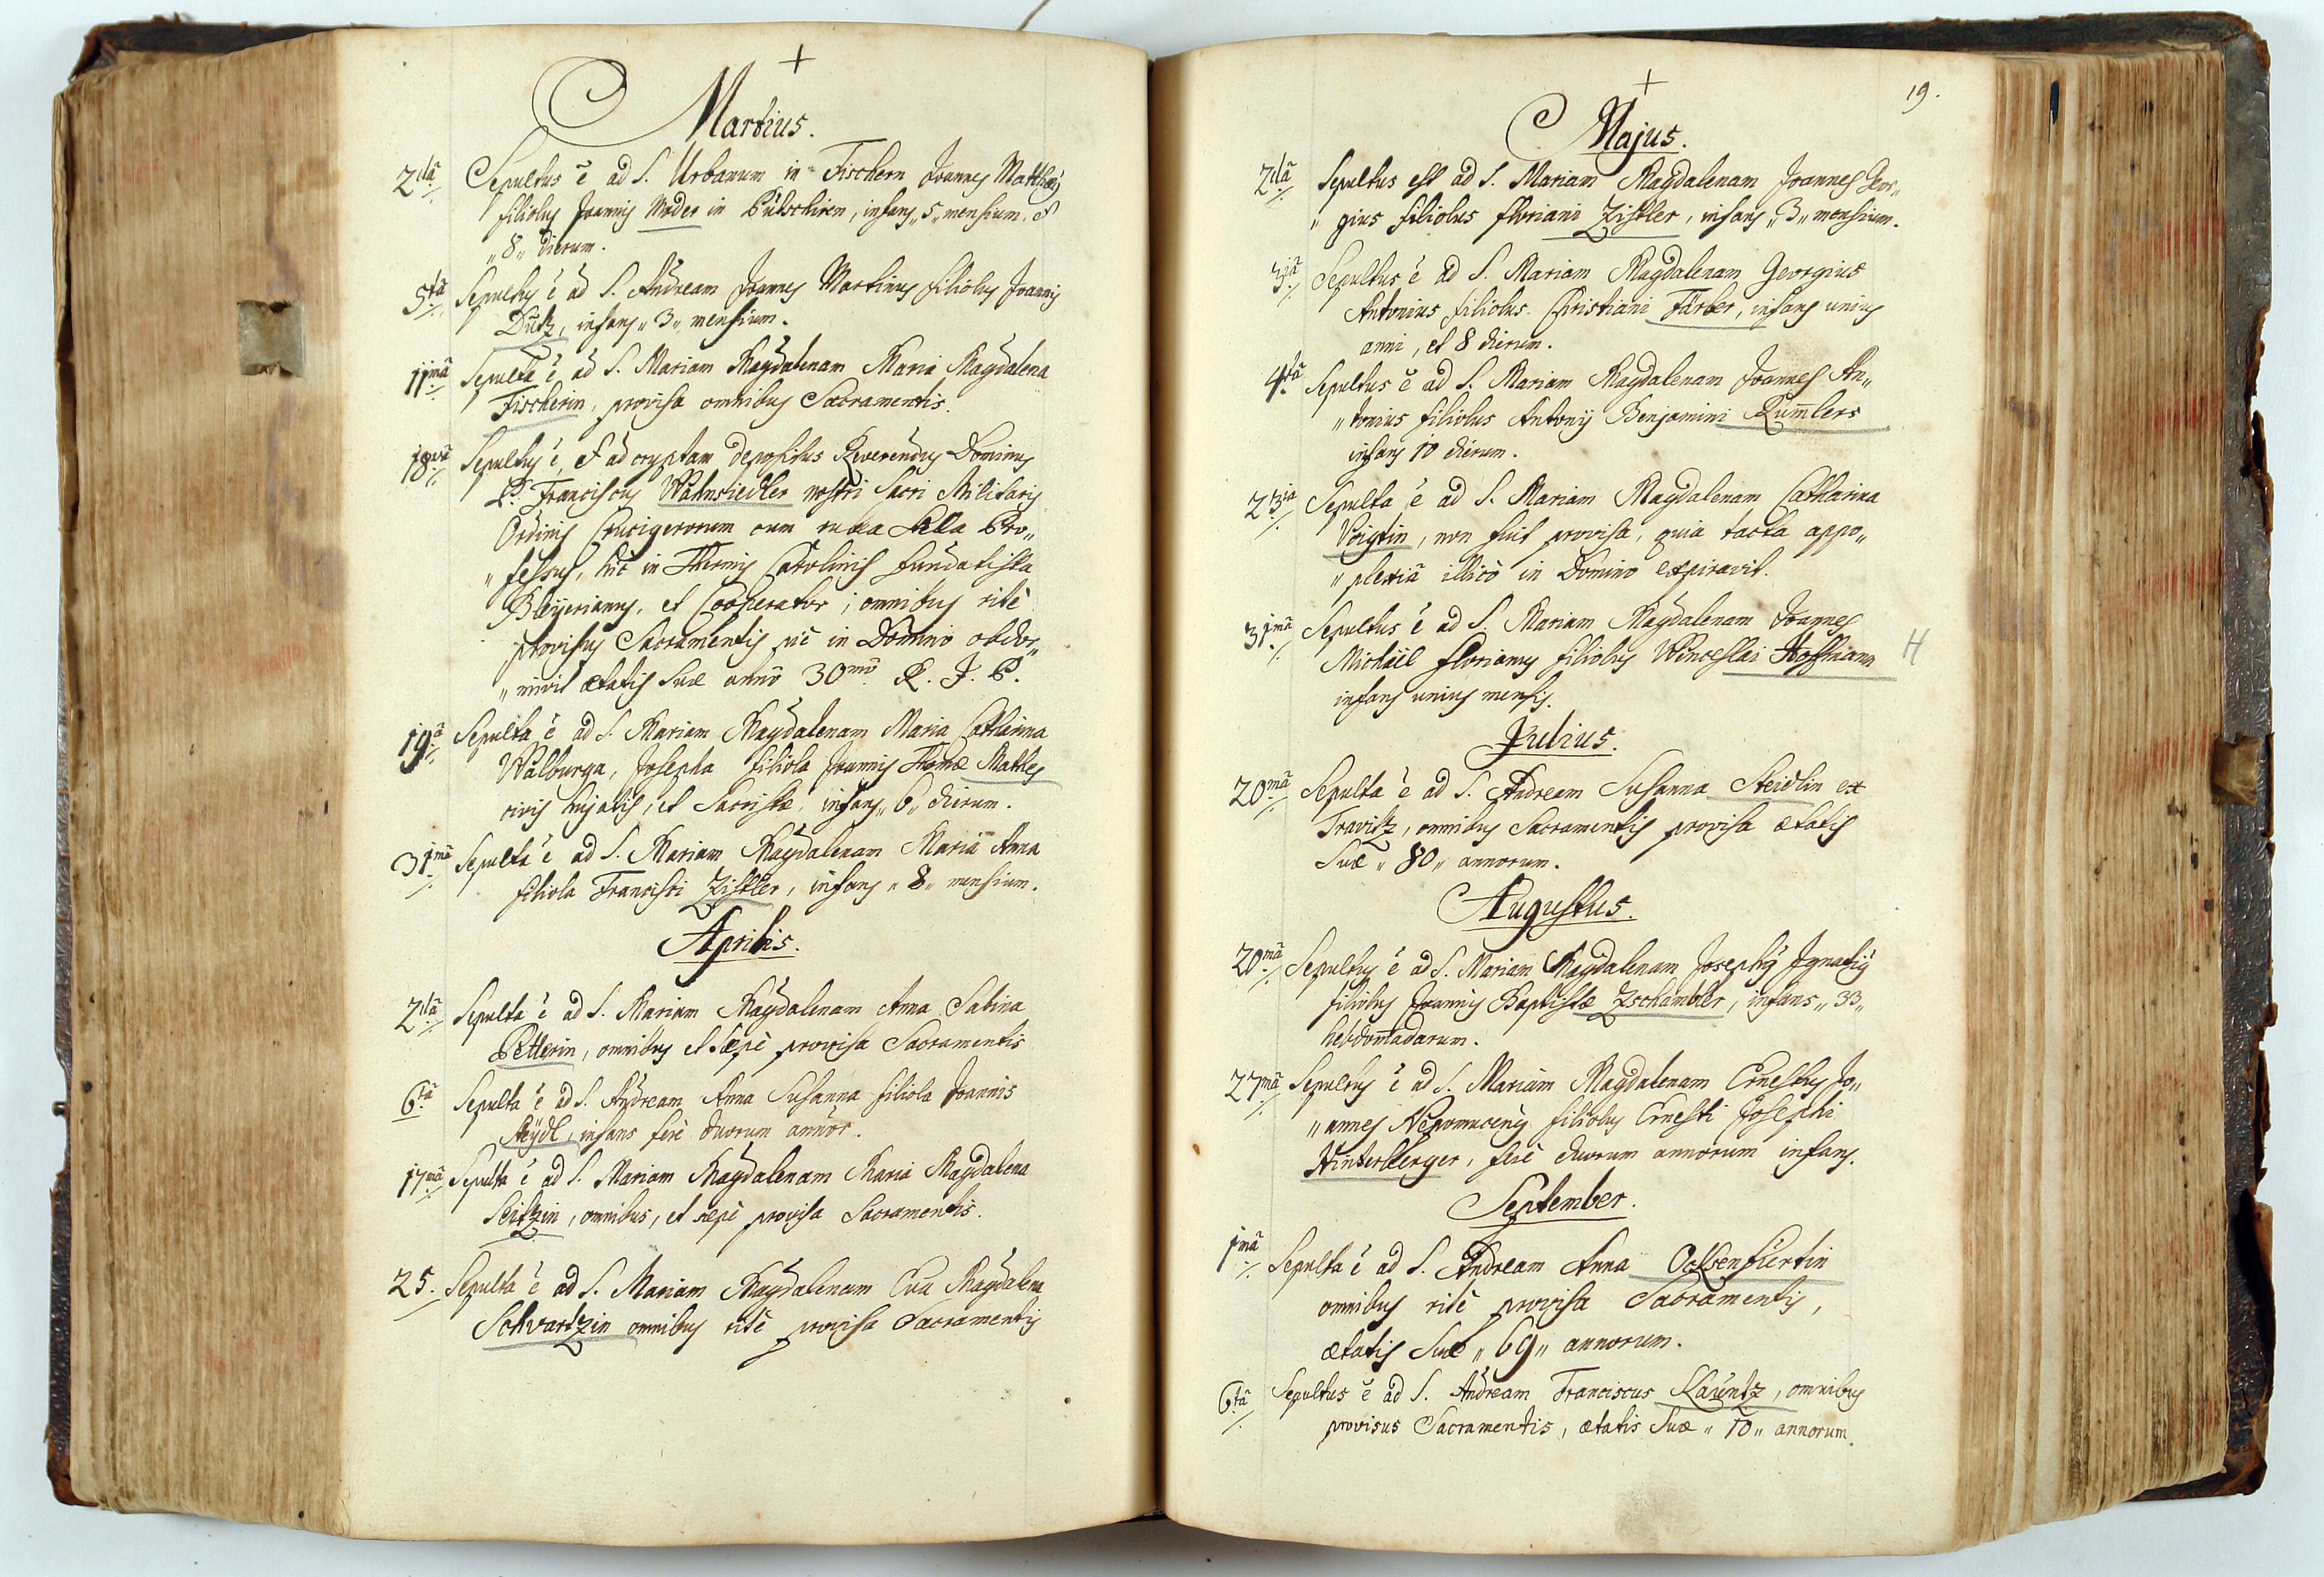 +
Martius.
2dâ Sepultus ẽ ad S. Urbanum in Fischern Joannes Matthæus
filiolus Joannis Moder in Pütschiren, infans „5„ mensium, et
„8„ dierum.
5tâ Sepultus ẽ ad S. Andream Joannes Martinus filiolus Joannis
Dutz, infans „3„ mensium.
11mâ Sepulta ẽ ad S. Mariam Magdalenam Maria Magdalena
Fischerin, provisa omnibus Sacramentis.
18vâ Sepultus ẽ, et ad cryptam depositus Reverendus Dominus
P. Franciscus Wahnsiedler nostri Sacri Militaris
Ordinis Crucigerorum cum rubea stella Pro„
„fessus, hic in Thermis Carolinis fundatista
Bleyerianus, et Cooperator; omnibus ritè
provisus Sacramentis piè in Domino obdor„
„mivit ætatis suæ annô 30mô. R. I. P.
19â Sepulta ẽ ad S. Mariam Magdalenam Maria Catharina
Walburga, Josepha filiola Joannis Thomæ Mathes
civis hujatis, et Sacristæ, infans „6„ dierum.
31mâ Sepulta ẽ ad S. Mariam Magdalenam Maria Anna
filiola Francisci Zistler, infans „8„ mensium.
Aprilis.
2dâ Sepulta ẽ ad S. Mariam Magdalenam Anna Sabina
Petlerin, omnibus et sæpè provisa Sacramentis
6tâ Sepulta ẽ ad S. Andream Anna Susanna filiola Joannis
Steÿdl, infans ferè duorum annor.
17mâ Sepulta ẽ ad S. Mariam Magdalenam Maria Magdalena
Seitzin, omnibus, et sæpè provisa Sacramentis.
25. Sepulta ẽ ad S. Mariam Magdalenam Eva Magdalena
Schwartzin omnibus ritè provisa Sacramentis
+
19.
Majus.
2dâ Sepultus est ad S. Mariam Magdalenam Joannes Geor„
„gius filiolus Floriani Zistler, infans „3„ mensium.
3iâ Sepultus ẽ ad S. Mariam Magdalenam Georgius
Antonius filiolus Christiani Färber, infans unius
anni, et 8 dierum.
4tâ Sepultus ẽ ad S. Mariam Magdalenam Joannes An„
„tonius filiolus Antonij Benjamini Rum̃lers
infans 10 dierum.
23iâ Sepulta ẽ ad S. Mariam Magdalenam Catharina
Voigtin, non fuit provisa, quia tacta appo„
„plexiâ illicò in Domino expiravit.
31mâ Sepultus ẽ ad S. Mariam Magdalenam Joannes
Michäel Florianus filiolus Wenceslai Hoffmann H
infans unius mensis.
Julius.
20mâ Sepulta ẽ ad S. Andream Susanna Steidlin ex
Travitz, omnibus Sacramentis provisa ætatis
suæ „80„ annorum.
Augustus.
20mâ Sepultus ẽ ad S. Mariam Magdalenam Josephus Ignatius
filiolus Joannis Baptistæ Zschambler, infans „33„
hebdom̃adarum.
27mâ Sepultus ẽ ad S. Mariam Magdalenam Ernestus Jo„
„annes Nepomucenus filiolus Ernesti Josephi
Hinterberger, ferè duorum annorum infans.
September.
1mâ Sepulta ẽ ad S. Andream Anna Ochsenfürtin
omnibus ritè provisa Sacramentis,
ætatis suæ „69„ annorum.
6tâ Sepultus ẽ ad S. Andream Franciscus Kauntz, omnibus
provisus Sacramentis, ætatis suæ „70„ annorum.